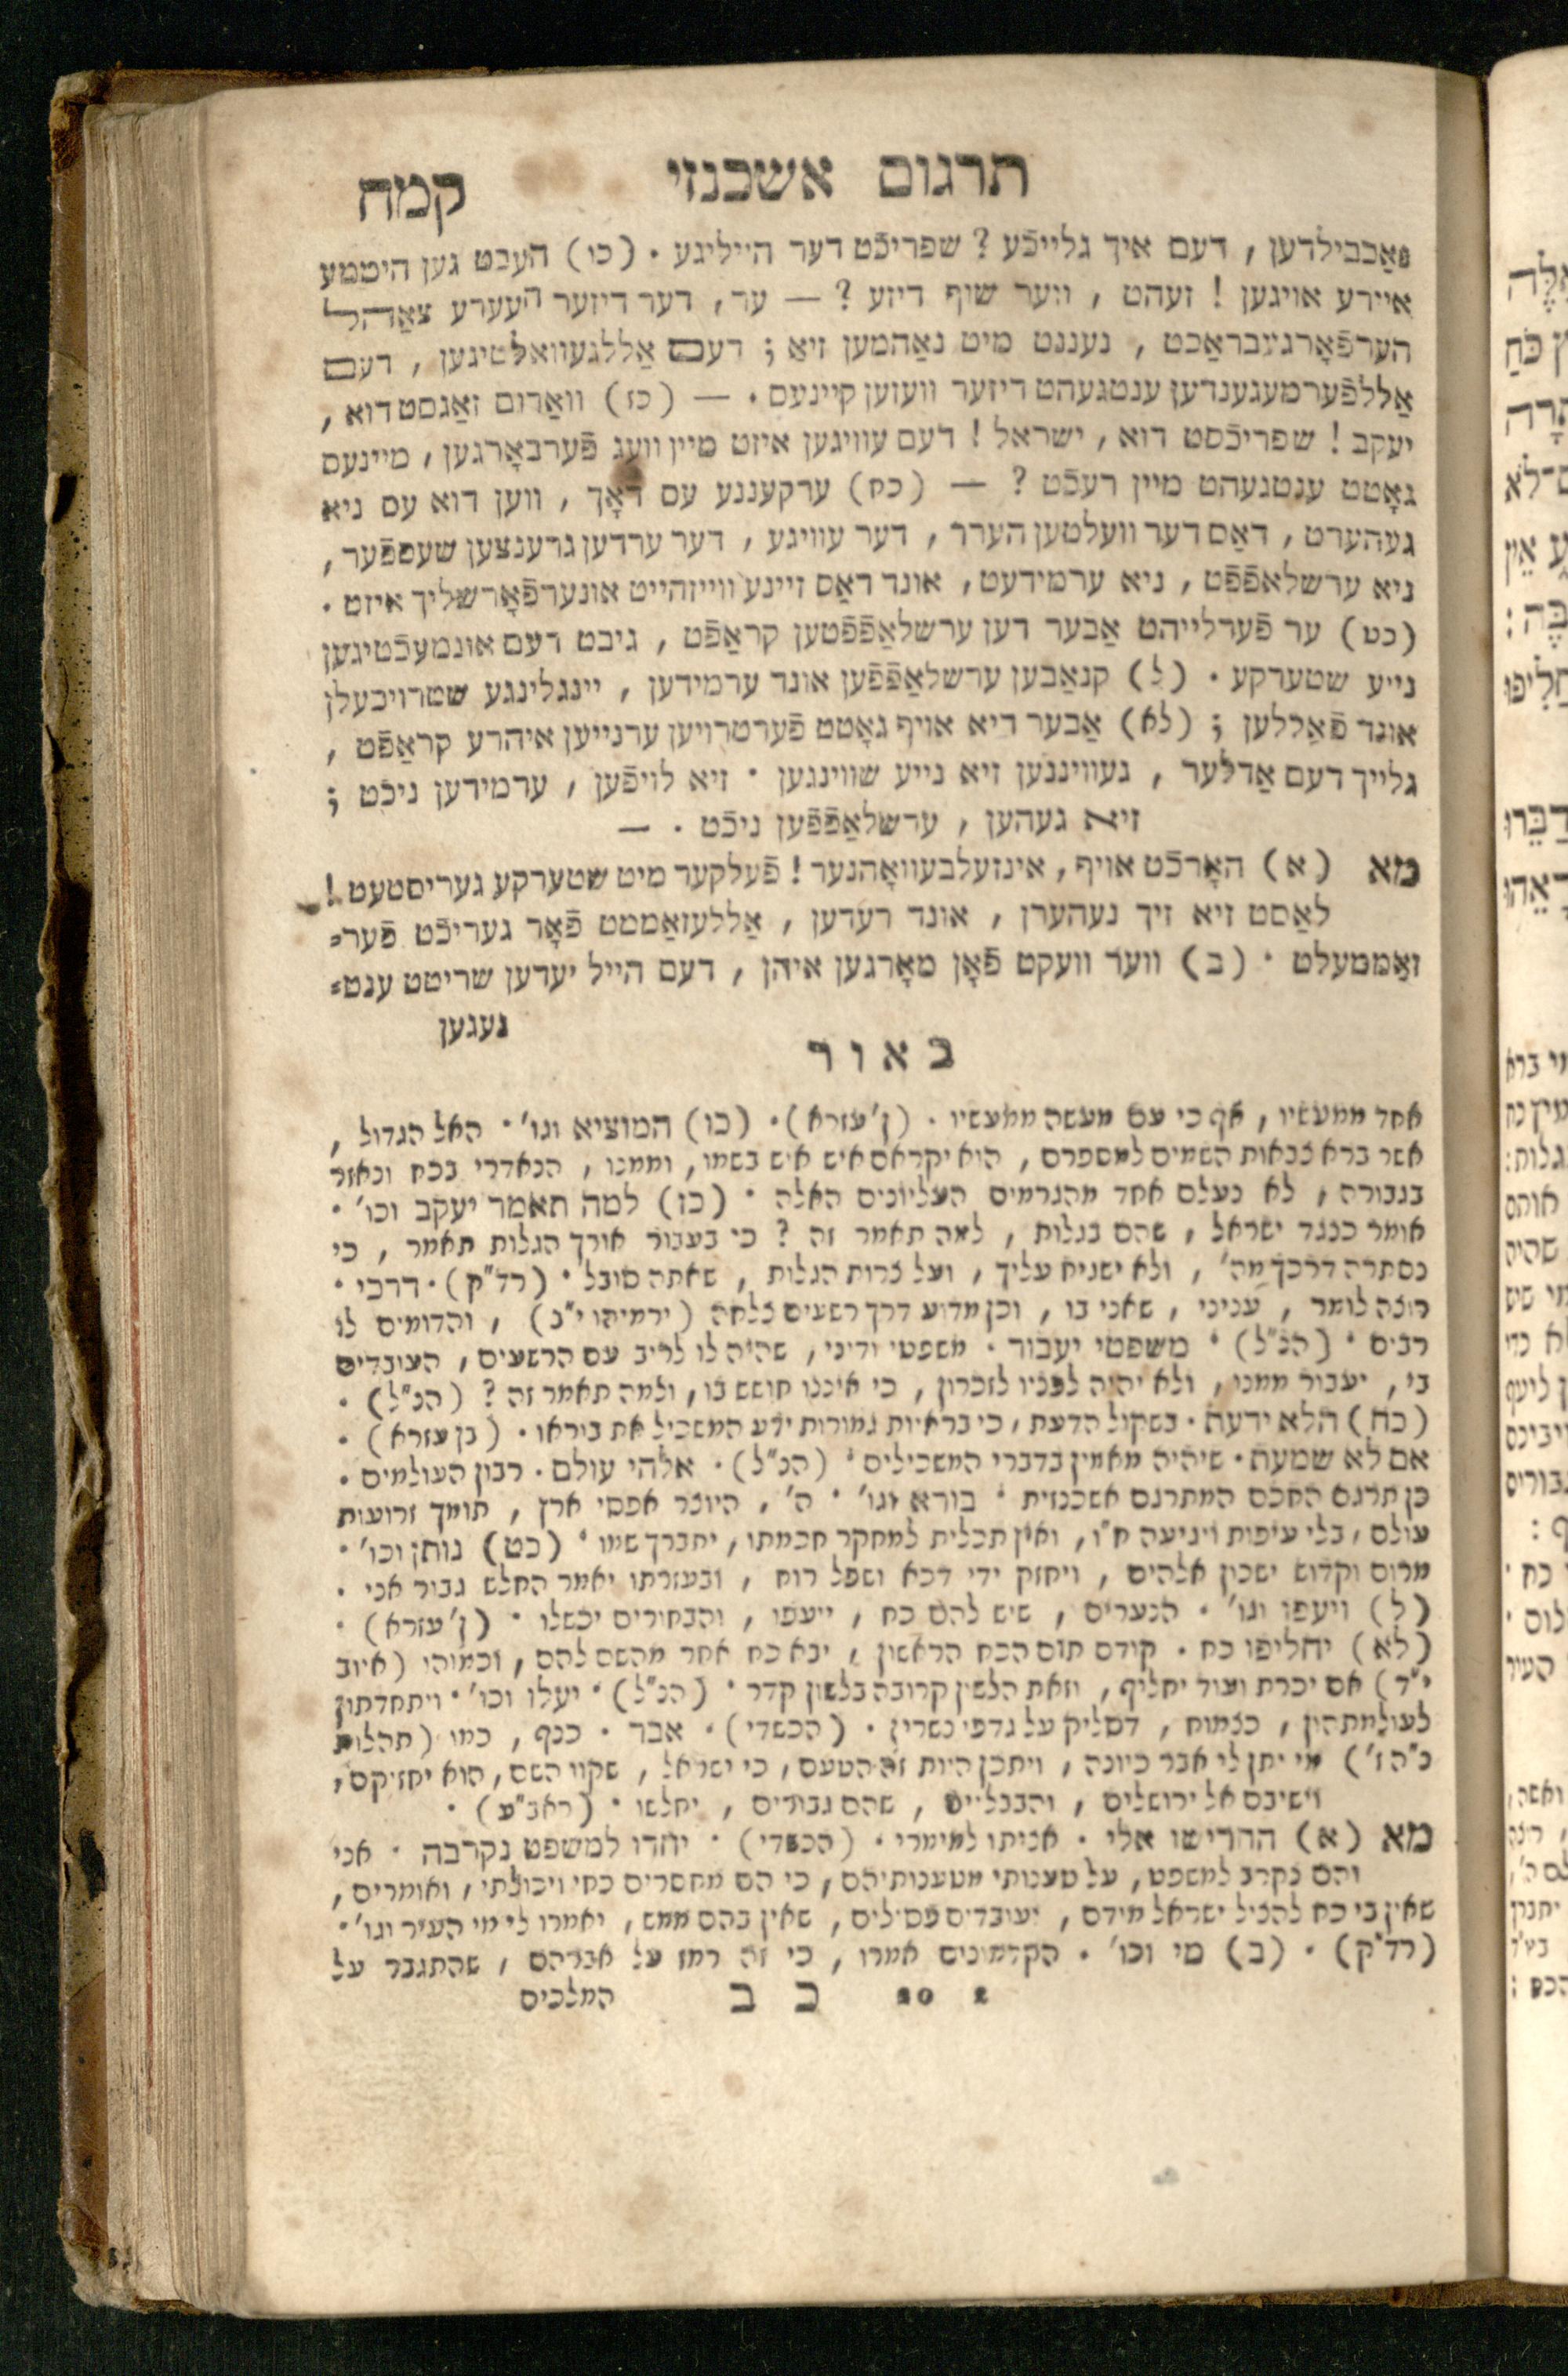 תרגום אשכנזי
קמח
נאַכבילדען , דעם איך גלייכֿע ? שפריכֿט דער הייליגע . (כו) העבט גען היממע
איירע אויגען ! זעהט , ווער שוף דיזע ? — ער , דער דיזער העערע צאַהל
הערפֿאָרגעבראַכט , נעננט מיט נאַהמען זיא ; דעם אַללגעוואַלטיגען , דעם
אַללפֿערמעגענדען ענטגעהט דיזער וועזען קיינעס . — (כז) וואַרום זאַגסט דוא ,
יעקב ! שפריכֿסט דוא , ישראל ! דעם עוויגען איזט מיין וועג פֿערבאָרגען , מיינעם
גאָטט ענטגעהט מיין רעכֿט ? — (כח) ערקעננע עס דאָך , ווען דוא עס ניא
געהערט , דאַס דער וועלטען הערר , דער עוויגע , דער ערדען גרענצען שעפפֿער ,
ניא ערשלאַפֿפֿט , ניא ערמידעט , אונד דאַס זיינע ווייזהייט אונערפֿאָרשליך איזט .
(כט) ער פֿערלייהט אַבער דען ערשלאַפֿפֿטען קראַפֿט , גיבט דעם אונמעכֿטיגען
נייע שטערקע . (ל) קנאַבען ערשלאַפֿפֿען אונד ערמידען , יינגלינגע שטרויכעלן
אונד פֿאַללען ; (לא) אַבער דיא אויף גאָטט פֿערטרויען ערנייען איהרע קראַפֿט ,
גלייך דעם אַדלער , געווינגען זיא נייע שווינגען . זיא לויפֿען , ערמידען ניכֿט ;
זיא געהען , ערשלאַפֿפֿען ניכֿט . —
מא (א) האָרכֿט אויף , אינזעלבעוואָהנער ! פֿעלקער מיט שטערקע געריסטעט !
לאַסט זיא זיך נעהערן , אונד רעדען , אַללעזאַממט פֿאָר געריכֿט פֿער⸗
זאַממעלט . (ב) ווער וועקט פֿאָן מאָרגען איהן , דעם הייל יעדען שריטט ענט⸗
נעגען
באור
אחד ממעשיו , אף כי עם מעשה ממעשיו . (ן' עזרא) . (כו) המוציא וגו' . האל הגדול ,
אשר ברא צבאות השמים למספרם , הוא יקראם איש איש בשמו , וממנו , הנאדרי בכח ונאזר
בגבורה , לא נעלם אחד מהגרמים העליונים האלה . (כז) למה תאמר יעקב וכו' .
אומר כנגד ישראל , שהם בגלות , למה תאמר זה ? כי בעבור אורך הגלות תאמר , כי
נסתרה דרכך מה' , ולא ישגיח עליך , ועל צרות הגלות , שאתה סובל . (רד"ק) . דרכי .
רוצה לומר , עניני , שאני בו , וכן מדוע דרך רשעים צלחה (ירמיהו י"ב) , והדומים לו
רבים . (הנ"ל) . משפטי יעבור . משפטי ודיני , שהיה לו לריב עם הרשעים , העובדים
בי , יעבור ממנו , ולא יהיה לפניו לזכרון , כי איננו חושש בו , ולמה תאמר זה ? (הנ"ל) .
(כח) הלא ידעת . בשקול הדעת , כי בראיות גמורות ידע המשכיל את בוראו . (בן עזרא) .
אם לא שמעת . שיהיה מאמין בדברי המשכילים . (הנ"ל) . אלהי עולם . רבון העולמים .
כן תרגם החכם המתרגם אשכנזית . בורא וגו' . ה' , היוצר אפסי ארץ , תומך זרועות
עולם , בלי עיפות ויגיעה ח"ו , ואין תכלית למחקר חכמתו , יתברך שמו . (כט) נותן וכו' .
מרום וקדוש ישכון אלהים , ויחזק ידי דכא ושפל רוח , ובעזרתו יאמר החלש גבור אני .
(ל) ויעפו וגו' . הנערים , שיש להם כח , ייעפו , והבחורים יכשלו . (ן' עזרא) .
(לא) יחליפו כח . קודם תום הכח הראשון , יבא כח אחר מהשם להם , וכמוהו (איוב
י"ד) אם יכרת ועוד יחליף , וזאת הלשון קרובה בלשון קדר . (הנ"ל) . יעלו וכו' . ויתחדתון
לעולמתהין , כצמוח , דסליק על גדפי נשרין . (הכשדי) . אבר . כנף , כמו (תהלות
נ"ה ז') מי יתן לי אבר כיונה , ויתכן היות זה הטעם , כי ישראל , שקוו השם , הוא יחזיקם ,
וישיבם אל ירושלים , והבבליים , שהם גבורים , יחלשו . (ראב"ע) .
מא (א) החרישו אלי . אניתו למימרי . (הכשדי) . יחדו למשפט נקרבה . אני
והם נקרב למשפט , על טענותי מטענותיהם , כי הם מחסרים כחי ויכולתי , ואומרים ,
שאין בי כח להציל ישראל מידם , ועובדים פסילים , שאין בהם ממש , יאמרו לי מי העיר וגו' .
(רד"ק) . (ב) מי וכו' . הקדמונים אמרו , כי זה רמז על אברהם , שהתגבר על
20 2 כ ב המלכים